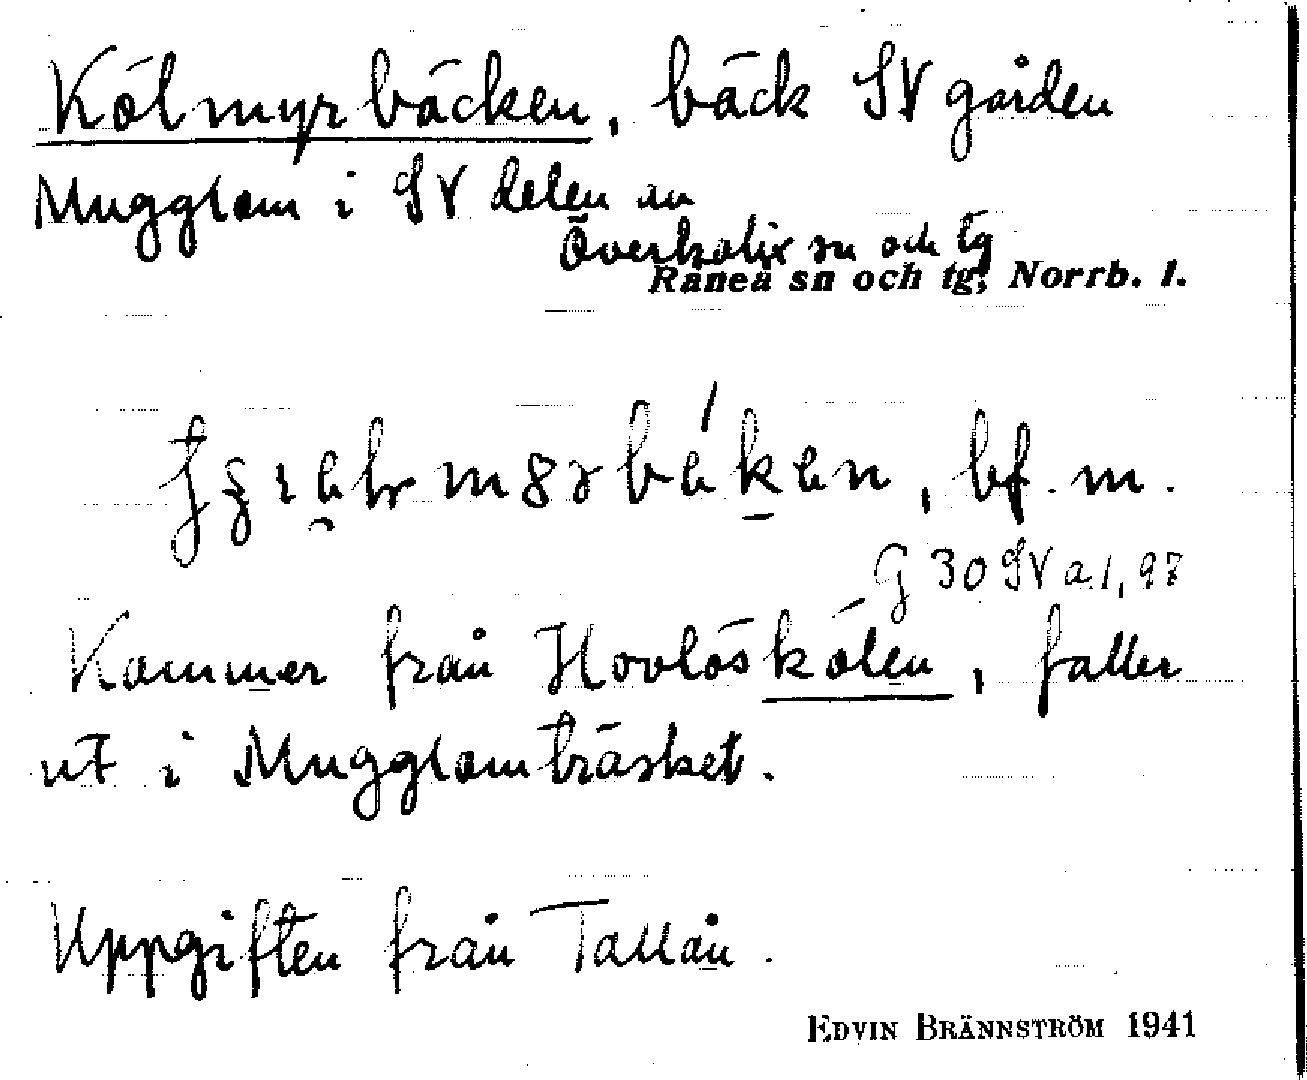 Kölmyrbäcken, bäck SV gården
Mugglom i SV delen av
Överkalix sn och tg
Råneå sn och tg, Norrb. l.
bf. m.
G 30 SV a.1, 97
Kommer från Hovlöskölen, faller
ut i Mugglomträsket.
Uppgiften från Tallån.
EDVIN BRÄNNSTRÖM 1941